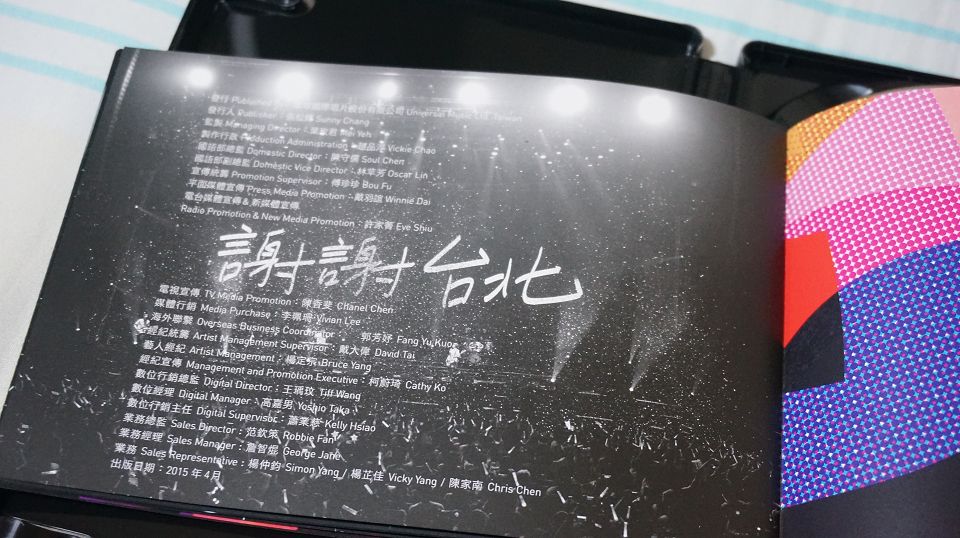 發行 Published 國際唱片股份有限公司 Universal Music Ltd. Taiwan
發行人 Publisher：Sunny Chang
監製 Managing Director：Yeh
製作行政 Production Administration：Vickie Chao
國語部總監 Domestic Director：陳守儒 Soul Chen
國語部副總監 Domestic Vice Director：林苹芳 Oscar Lin
宣傳統籌 Promotion Supervisor：傅珍珍 Bou Fu
平面媒體宣傳 Press Media Promotion：戴羽誼 Winnie Dai
電台媒體宣傳&新媒體宣傳
Radio Promotion & New Media Promotion：許家菁 Eve Shiu
謝謝台北
電視宣傳 TV Media Promotion：陳香斐 Chanel Chen
媒體行銷 Media Purchase：李珮珊 Vivian Lee
海外聯繫 Overseas Business Coordinator： 郭芳妤 Fang Yu Kuo
經紀統籌 Artist Management Supervisor：戴大偉 David Tai
藝人經紀 Artist Management：楊定宗 Bruce Yang
經紀宣傳 Management and Promotion Executive：柯蔚琦 Cathy Ko
數位行銷總監 Digital Director：王瑀玟 Tiff Wang
數位經理 Digital Manager：高嘉男 Yoshio Taka
數位行銷主任 Digital Supervisor：蕭業慈 Kelly Hsiao
業務總監 Sales Director：范欽策 Robbie Fan
業務經理 Sales Manager：詹智焜 George Jane
業務 Sales Representative：楊仲鈞 Simon Yang / 楊芷佳 Vicky Yang / 陳家南 Chris Chen
出版日期：2015 年 4 月